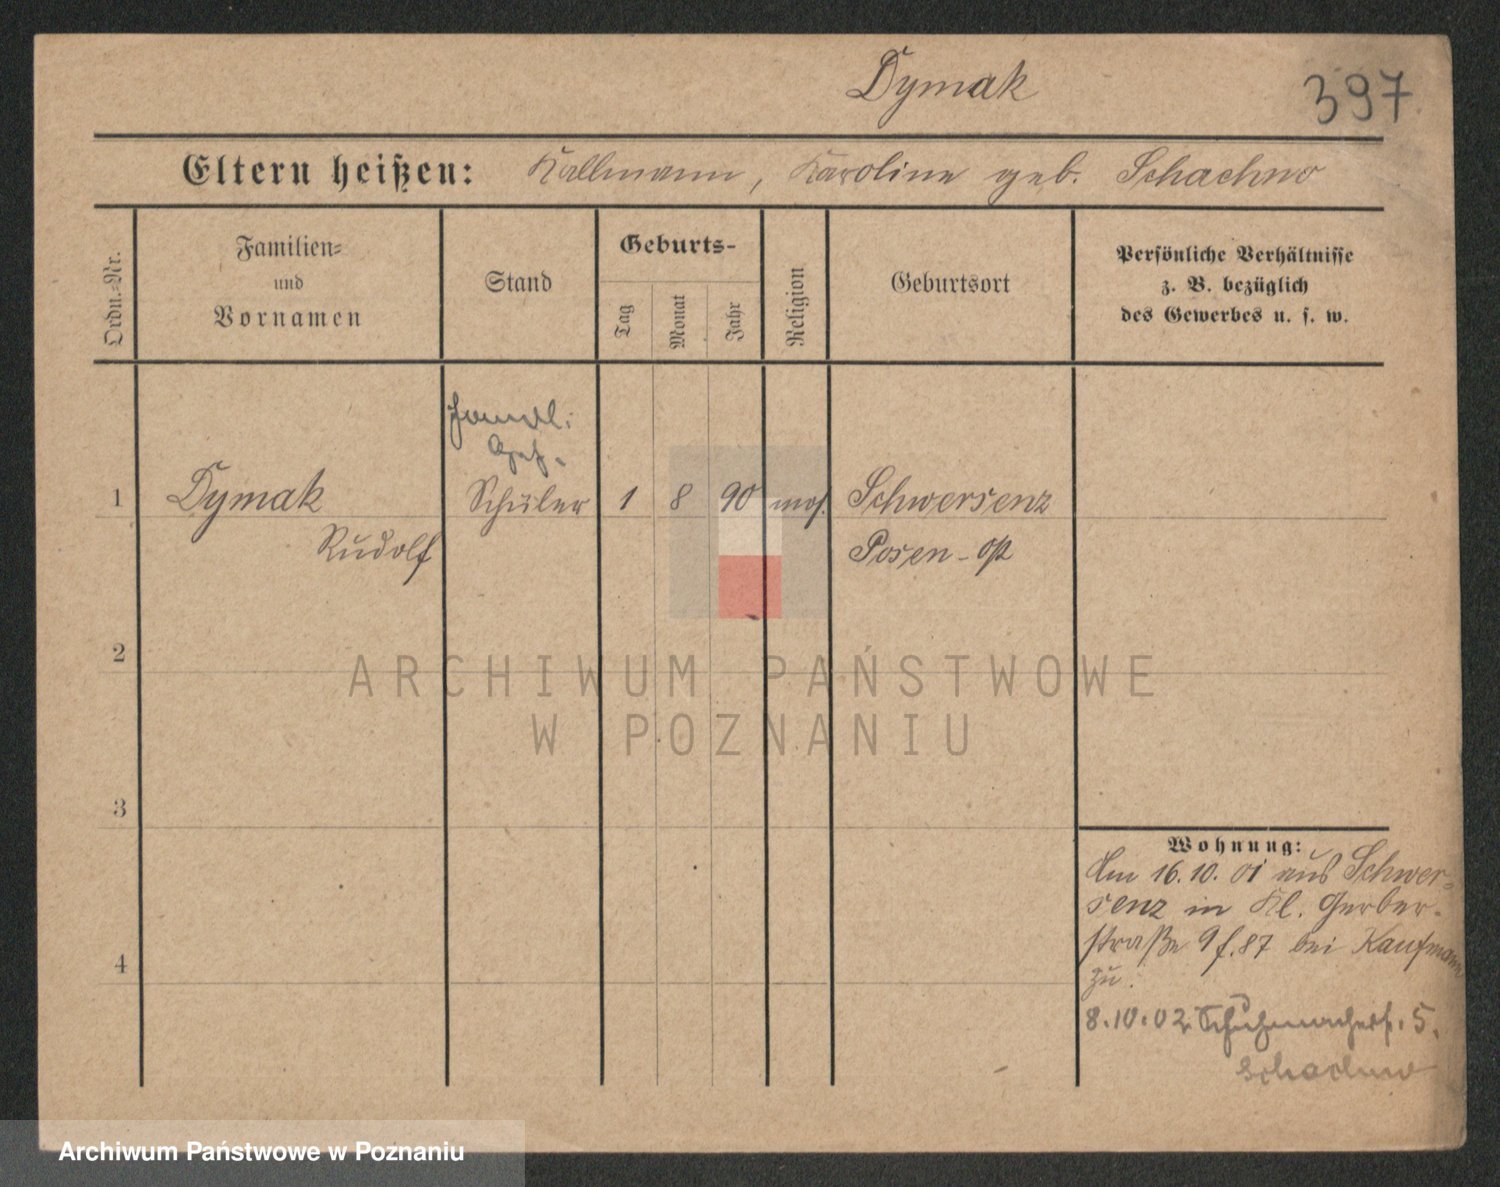 Dymak
397
Eltern heißen: Kallmann, Karoline geb. Schachno
Ordn.-Nr.
Familien-
und
Vornamen
Stand
Geburts-
Tag
Monat
Jahr
Religion
Geburtsort
Persönliche Verhältnisse
z. B. bezüglich
des Gewerbes u. s. w.
Handl.
1 Dymak Schüler 1 8 90 mos. Schwersenz
Rudolf Posen-Ost
2
3
4
Wohnung:
Am 16.10.01 aus Schwer-
senz in Kl. Gerber-
straße 9 f. 87 bei Kaufmann
zu.
8.10.02. Schuhmacherst. 5.
Schachno
ARCHIWUM PAŃSTWOWE
W POZNANIU
Archiwum Państwowe w Poznaniu